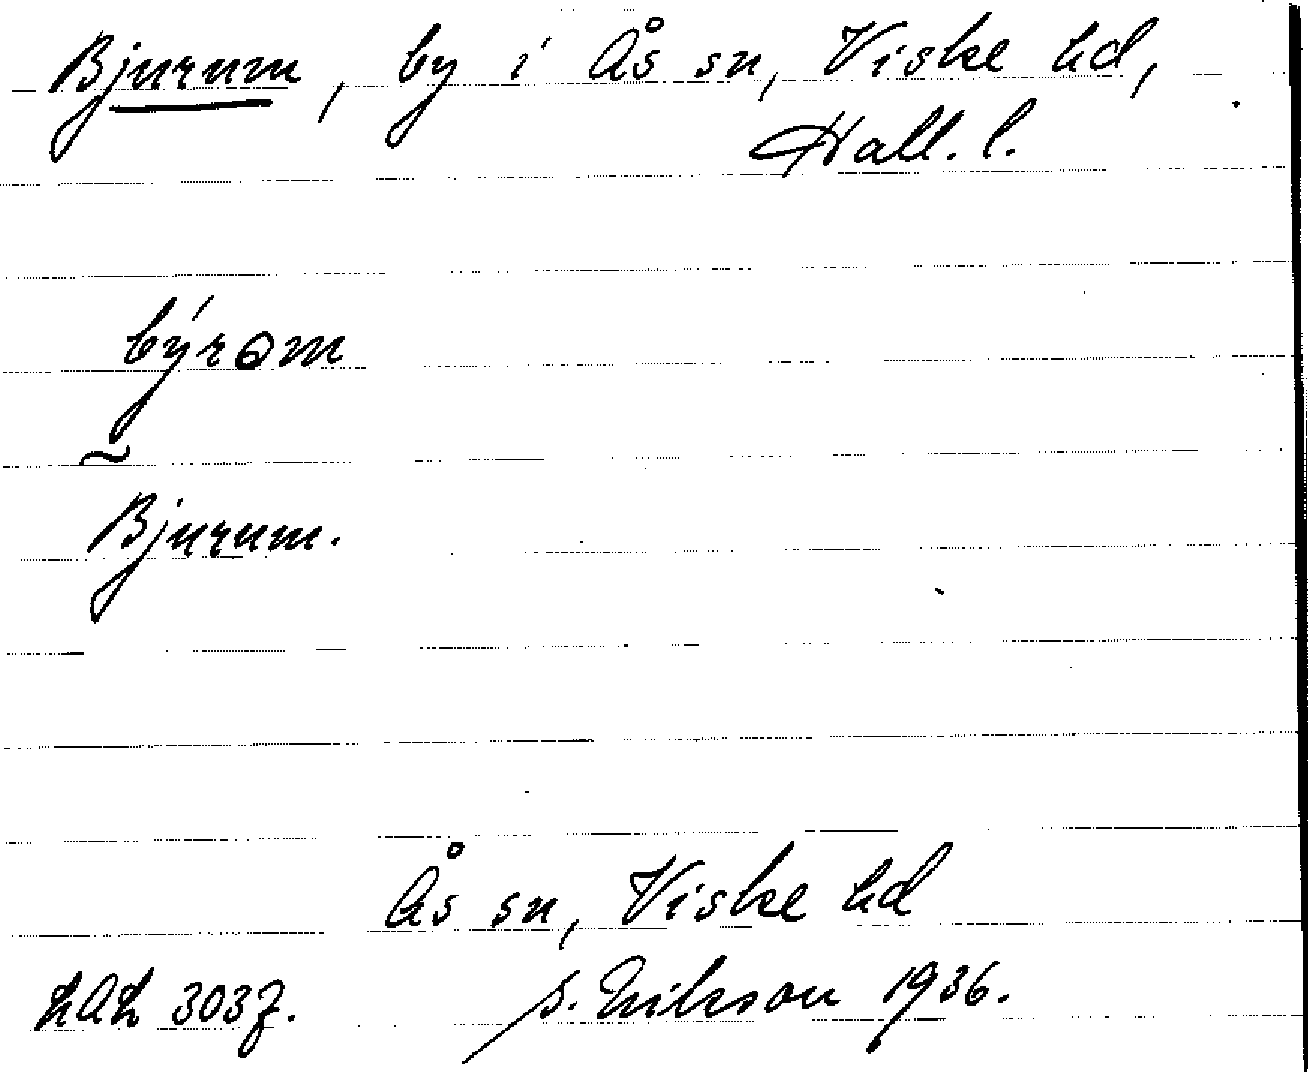 Bjurum, by i Ås sn, Viske hd,
Hall. l.
býrom
~
Bjurum.
Ås sn, Viske hd
3037. S. Erikson 1936.